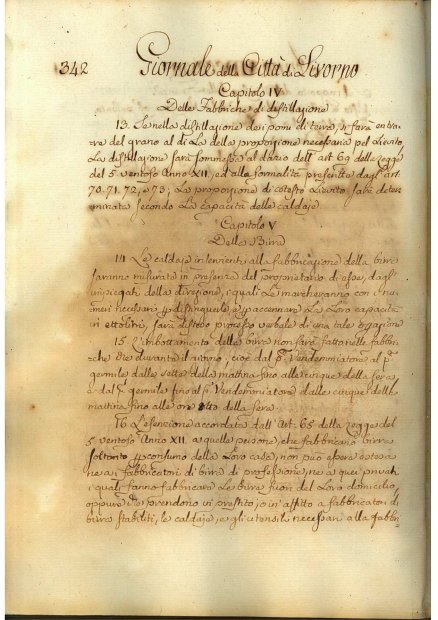 342 Giornale della Città di Livorno
Capitolo IV
Delle Fabbriche di distillazione
13. Se nella distillazione dei pomi di terra, si farà entra-
re del grano al di La della proporzione necessaria pel Lievito,
La distillazione sarà sommessa al dazio dell'art. 69 della Legge
del 5 ventoso Anno XII, ed alla formalità prescritta dagl'art.
70. 71. 72, e 73; La proporzione di cotesto Lievito sarà deter-
minata secondo La capacità delle caldaje
Capitolo V
Della Birra
14 Le caldaje inservienti alla fabbricazione della birra
saranno misurate in presenza del proprietario di esse, dagl'
impiegati della direzione, i quali Le marcheranno con i nu-
meri necessarj p distinguerle e p accennare La Loro capacità
in ettolitri, sarà disteso processo verbale di una tale operazione
15 L'imbottamento della birra non sarà fatto nelle fabbri-
che che durante il giorno, cioè dal p.º Vendemmiatore al p.º
germile dalle sette della mattina fino alle cinque della sera
e dal p.º germile fino al p.º Vendemmiatore dalle cinque della
mattina fino alle ore otto della sera.
16 L'esenzione accordata dall'Art. 65 della Legge del
5 ventoso Anno XII. a quelle persone, che fabbricano birra
soltanto p consumo della Loro casa, non può essere estesa
ne a i fabbricatori di birra di professione, ne a quei privati
i quali fanno fabbricare Le birre fuori del Loro domicilio,
oppure che prendono in prestito, o in affitto a fabbricatori di
birra stabiliti, le caldaje, e gli utensili necessari alla fabbri